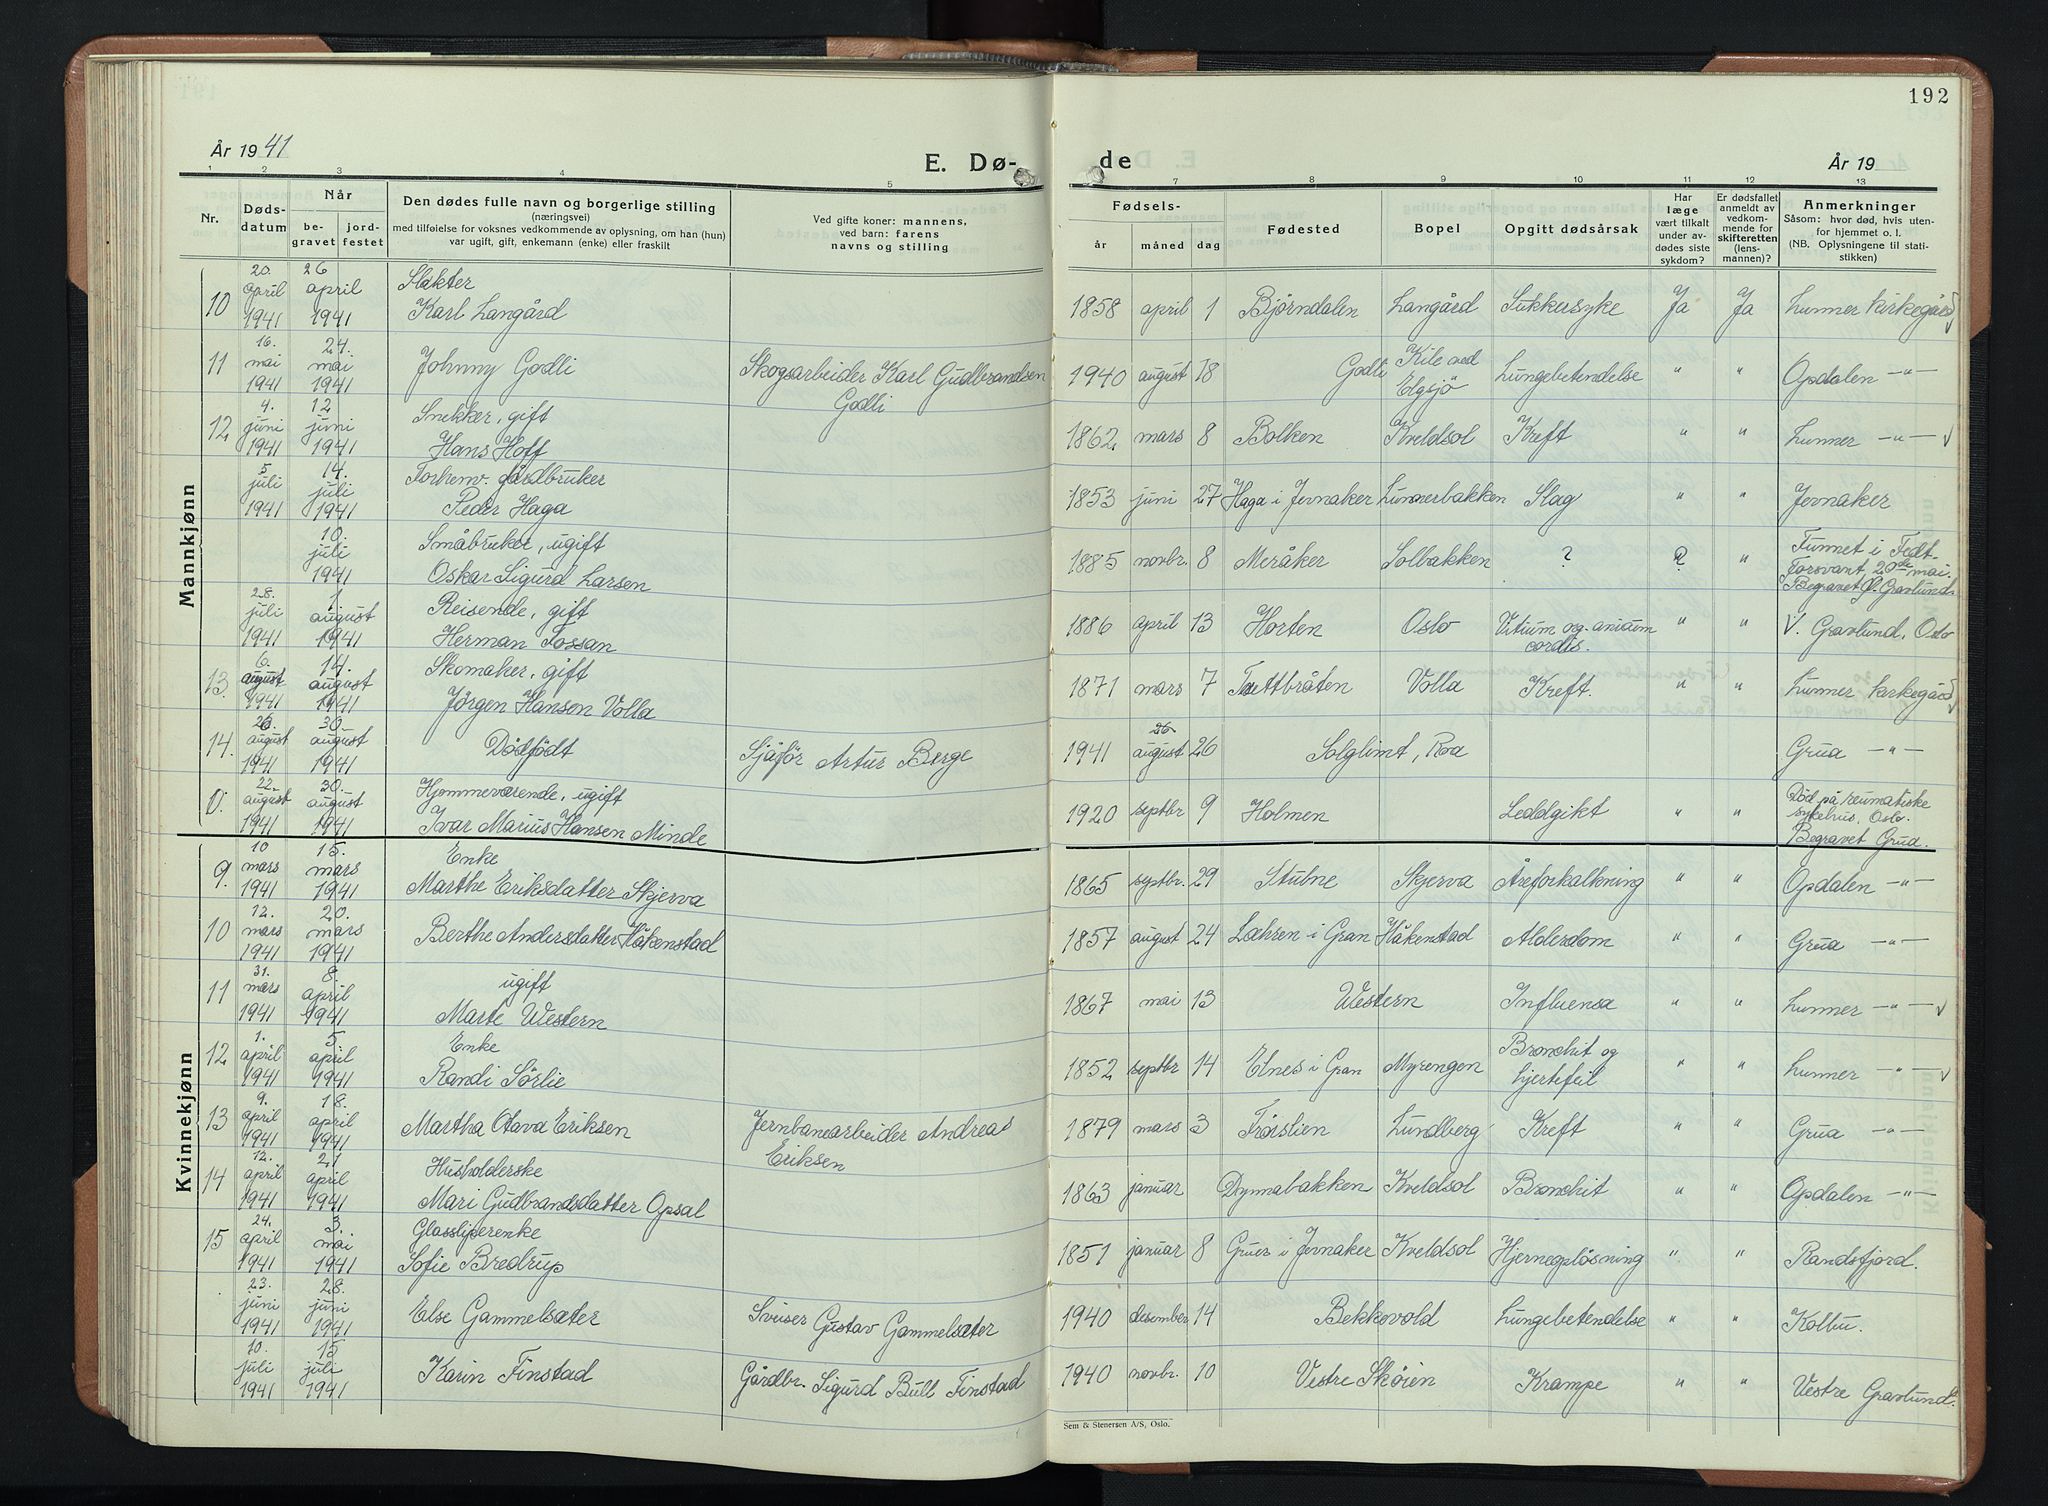 192
År 1941
E. Dø-
de
År 19
1 2 3 4 5 7 8 9 10 11 12 13
Nr. Døds-datum Når be-gravet jord-festet
Den dødes fulle navn og borgerlige stilling
(næringsvei)
med tilføielse for voksnes vedkommende av oplysning, om han (hun)
var ugift, gift, enkemann (enke) eller fraskilt
Ved gifte koner: mannens,
ved barn: farens
navns og stilling
Fødsels-
år måned dag
Fødested
Bopel
Opgitt dødsårsak
Har
læge
vært tilkalt
under av-
dødes siste
sykdom?
Er dødsfallet
anmeldt av
vedkom-
mende for
skifteretten
(lens-
mannen)?
Anmerkninger
Såsom: hvor død, hvis uten-
for hjemmet o. l.
(NB. Oplysningene til stati-
stikken)
Mannkjønn
10 20. april 1941 26 april 1941 Slakter Karl Langård 1858 april 1 Bjørndalen Langård Sukkersyke Ja Ja Lunner kirkegård
11 16. mai 1941 24. mai 1941 Johnny Godli Skogsarbeider Karl Gudbrandsen Godli 1940 august 18 Godli Kile ved Elgsjö Lungebetendelse " " Opdalen —"—
12 4. juni 1941 12 juni 1941 Snekker, gift Hans Hoff 1862 mars 8 Bolken Kveldsol Kreft " " Lunner —"—
5 juli 1941 14. juli 1941 Forhenv. gårdbruker Peder Haga 1853 juni 27 Haga i Jevnaker Lunnerbakken Slag " " Jevnaker
10. juli 1941 Småbruker, ugift Oskar Sigurd Larsen 1885 novbr. 8 Meråker Solbakken ? ? " Funnet i Fedt- Forsvant 20de mai. Begravet Ø. Gravlund
28. juli 1941 1 august 1941 Reisende, gift Herman Fossan 1886 april 13 Horten Oslo Vitium cordis. " " V. Gravlund, Oslo
13. 6. august 1941 14. august 1941 Skomaker, gift Jörgen Hansen Volla 1871 mars 7 Volla Kreft. " " Lunner kirkegård
14. 26 august 1941 30. august 1941 Dödfödt Sjåför Artur Berge 1941 26 august 26 Solglimt, Roa Grua —"—
0. 22. august 1941 30. august 1941 Hjemmeværende, ugift Ivar Marius Hansen Minde 1920 septbr 9 Holmen Leddgikt " " Död på reumatiske sykehus, Oslo. Begravet Grua.
Kvinnekjønn
9. 10 mars 1941 15. mars 1941 Enke Marthe Eriksdatter Skjerva 1865 septbr. 29 Stubne Skjerva Åreforkalkning " " Opdalen —"—
10 12. mars 1941 20. mars 1941 Berthe Andersdatter Håkenstad 1857 august 24 Læhren i Gran Håkenstad Alderdom " " Grua —"—
11 31. mars 1941 8. april 1941 ugift Marte Western 1867 mai 13 Western Influensa " " Lunner —"—
12 1. april 1941 5 april 1941 Enke Randi Sörlie 1852 septbr 14 Elnes i Gran Myrengen Bronchit og hjertefeil " " Lunner —"—
13 9. april 1941 18. april 1941 Martha Otava Eriksen Jernbanearbeider Andreas Eriksen 1879 mars 3 Lundberg Kreft " " Grua —"—
14 12. april 1941 21 april 1941 Husholderske Mari Gudbrandsdatter Opsal 1863 januar Dynnabakken Kveldsol Bronchit " " Opdalen —"—
15 24. april 1941 3. mai 1941 Glassliperenke Sofie Bredrup 1851 januar 8 Gruer i Jevnaker Kveldsol Hjerneopløsning " " Randsfjord.
23. juni 1941 28. juni 1941 Else Gammelsæter Sveiser Gustav Gammelsæter 1940 desember 14 Bekkevold Lungebetendelse " " Kolbu.
10. juli 1941 15 juli 1941 Karin Finstad Gårdbr. Sigurd Bull Finstad 1940 novbr. 10 Vestre Skøien Krampe " " Vestre Gravlund.
Sem & Stenersen A/S, Oslo.